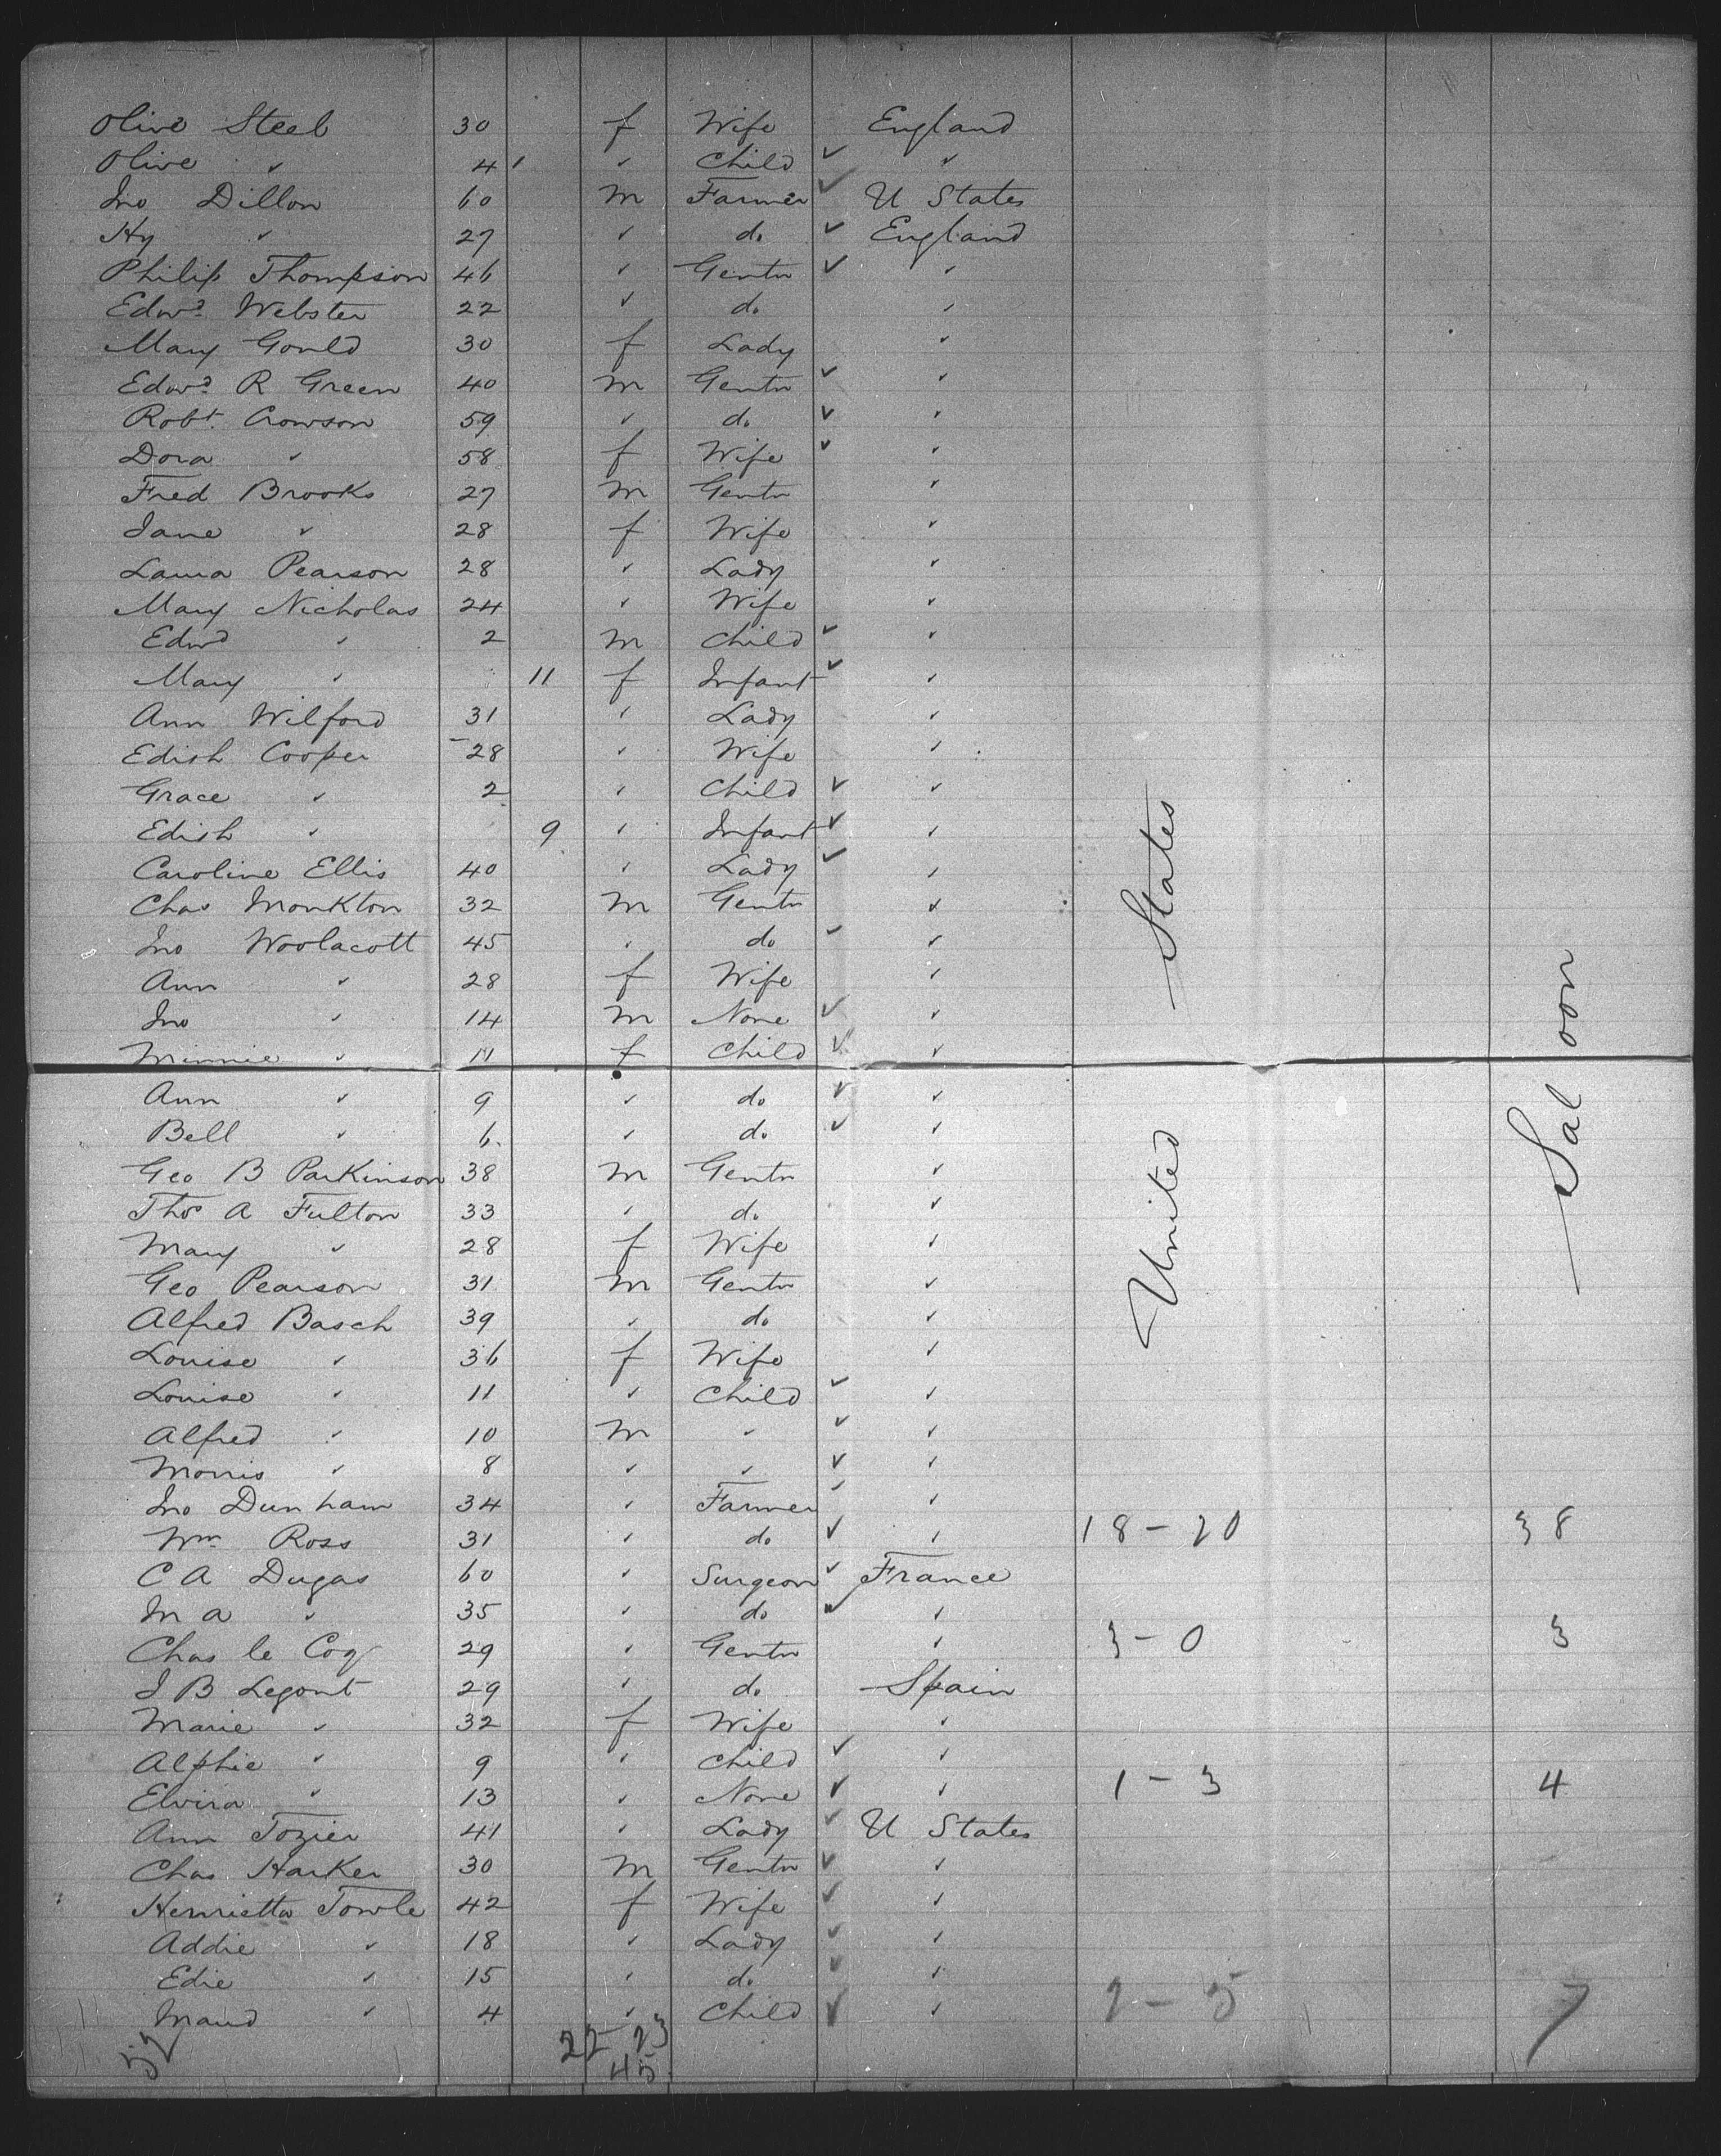 Olive Steel 30 f Wife England
Olive " 4 " Child ✓ "
Jno Dillon 60 m Farmer ✓ U States
Hy " 27 " do ✓ England
Philip Thompson 46 " Gentn ✓ "
Edwd Webster 22 " do "
Mary Gould 30 f Lady "
Edwd R Green 40 m Gentn ✓ "
Robt Crowson 59 " do ✓ "
Dora " 58 f Wife ✓ "
Fred Brooks 27 m Gentn "
Jane " 28 f Wife "
Laura Pearson 28 " Lady "
Mary Nicholas 24 " Wife "
Edwd " 2 m Child ✓ "
Mary " 11 f Infant ✓ "
Ann Wilford 31 " Lady "
Edish Cooper 28 " Wife "
Grace " 2 " Child ✓ "
Edish " 9 " Infant ✓ "
Caroline Ellis 40 " Lady ✓ "
Chas Monkton 32 m Gentn "
Jno Woolacott 45 " do ✓ "
Ann " 28 f Wife "
Jno " 14 m None ✓ "
Minnie " 11 f Child ✓ "
Ann " 9 " do ✓ "
Bell " 6 " do ✓ "
Geo B Parkinson 38 m Gentn "
Thos A Fulton 33 " do "
Mary " 28 f Wife "
Geo Pearson 31 m Gentn "
Alfred Basch 39 " do "
Louise " 36 f Wife "
Louise " 11 " Child ✓ "
Alfred " 10 m " ✓ "
Morris " 8 " " ✓ "
Jno Dunham 34 " Farmer ✓ "
Wm Ross 31 " do ✓ " 18-20 38
C A Dugas 60 " Surgeon ✓ France
M A " 35 " do ✓ "
Chas le Coq 29 " Gentn " 3-0 3
J B Legont 29 " do Spain
Marie " 32 f Wife "
Alphie " 9 " Child ✓ "
Elvira " 13 " None ✓ " 1-3 4
Ann Tozier 41 " Lady ✓ U States
Chas Harker 30 m Gentn ✓ "
Henrietta Towle 42 f Wife ✓ "
Addie " 18 " Lady ✓ "
Edie " 15 " do ✓ "
Maud " 4 " Child ✓ " 2-5 7
52 22 23
45
United States
Saloon